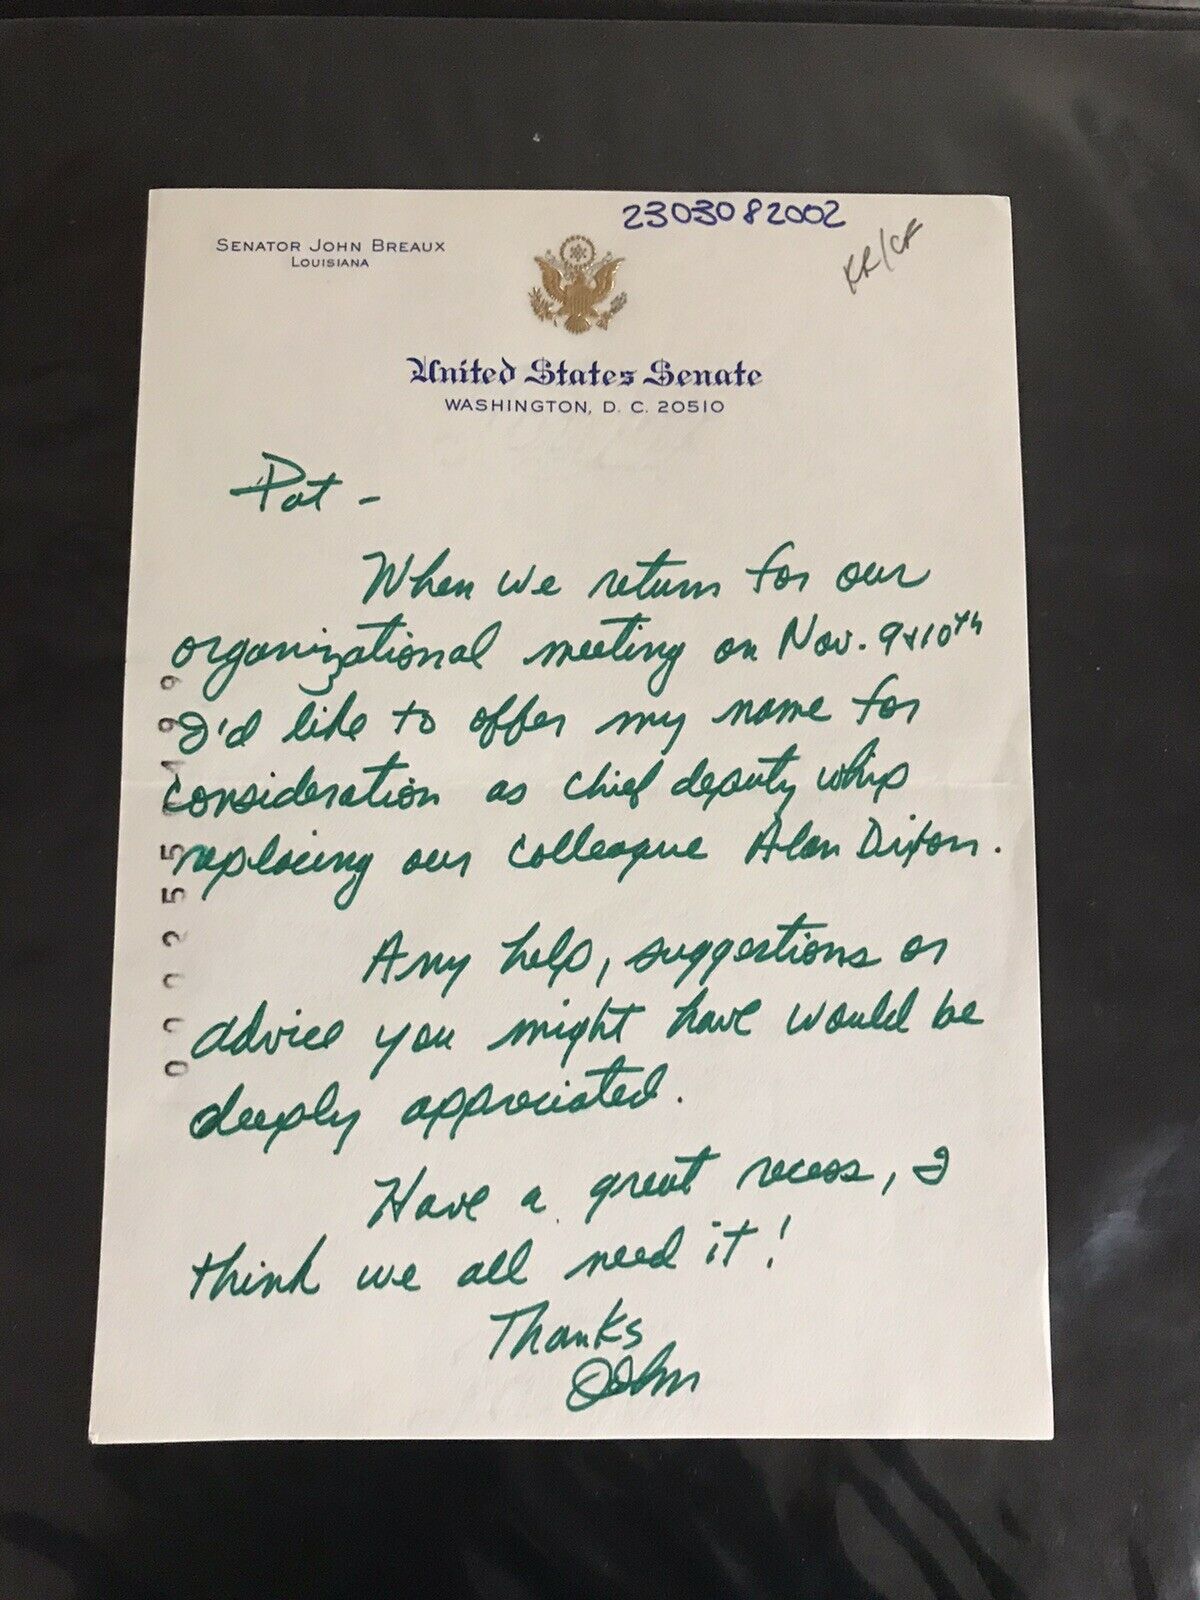 2303082002
SENATOR JOHN BREAUX
LOUISIANA
KR/CF
United States Senate
WASHINGTON, D. C. 20510
Pat -
When we return for our
organizational meeting on Nov. 9 & 10th
I'd like to offer my name for
consideration as chief deputy whip
replacing our colleague Alan Dixon.
Any help, suggestions or
advice you might have would be
deeply appreciated.
Have a great recess, I
think we all need it!
Thanks
John